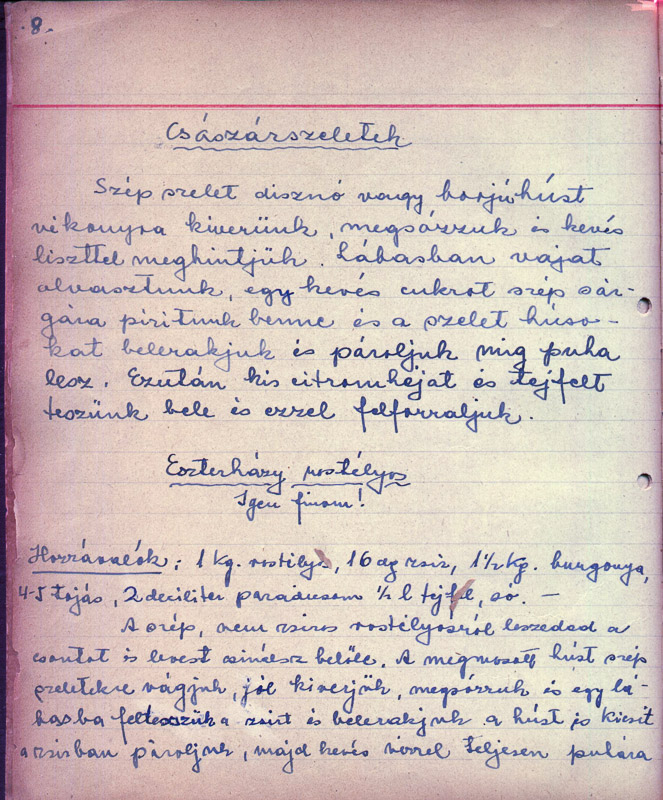 8.
Császárszeletek
Szép szelet disznó vagy borjúhúst
vékonyra kiverünk, megsózzuk és kevés
liszttel meghintjük. Lábasban vajat
olvasztunk, egy kevés cukrot szép sár-
gára piritunk benne és a szelet húso-
kat belerakjuk és pároljuk mig puha
lesz. Ezután kis citromhéjat és tejfelt
teszünk bele és ezzel felforraljuk.
Eszterházy rostélyos
Igen finom!
Hozzávalók: 1 kg. rostélyos, 16 dg zsir, 1½ kg. burgonya,
4-5 tojás, 2 deciliter paradicsom ½ l tejfel, só. —
A szép, nem zsiros rostélyosról leszeded a
csontot és levest csinálsz belőle. A megmosott húst szép
szeletekre vágjuk, jól kiverjük, megsózzuk és egy lá-
basba feltesszük a zsirt és belerakjuk a húst és kicsit
a zsirban pároljuk, majd kevés vizzel teljesen puhára